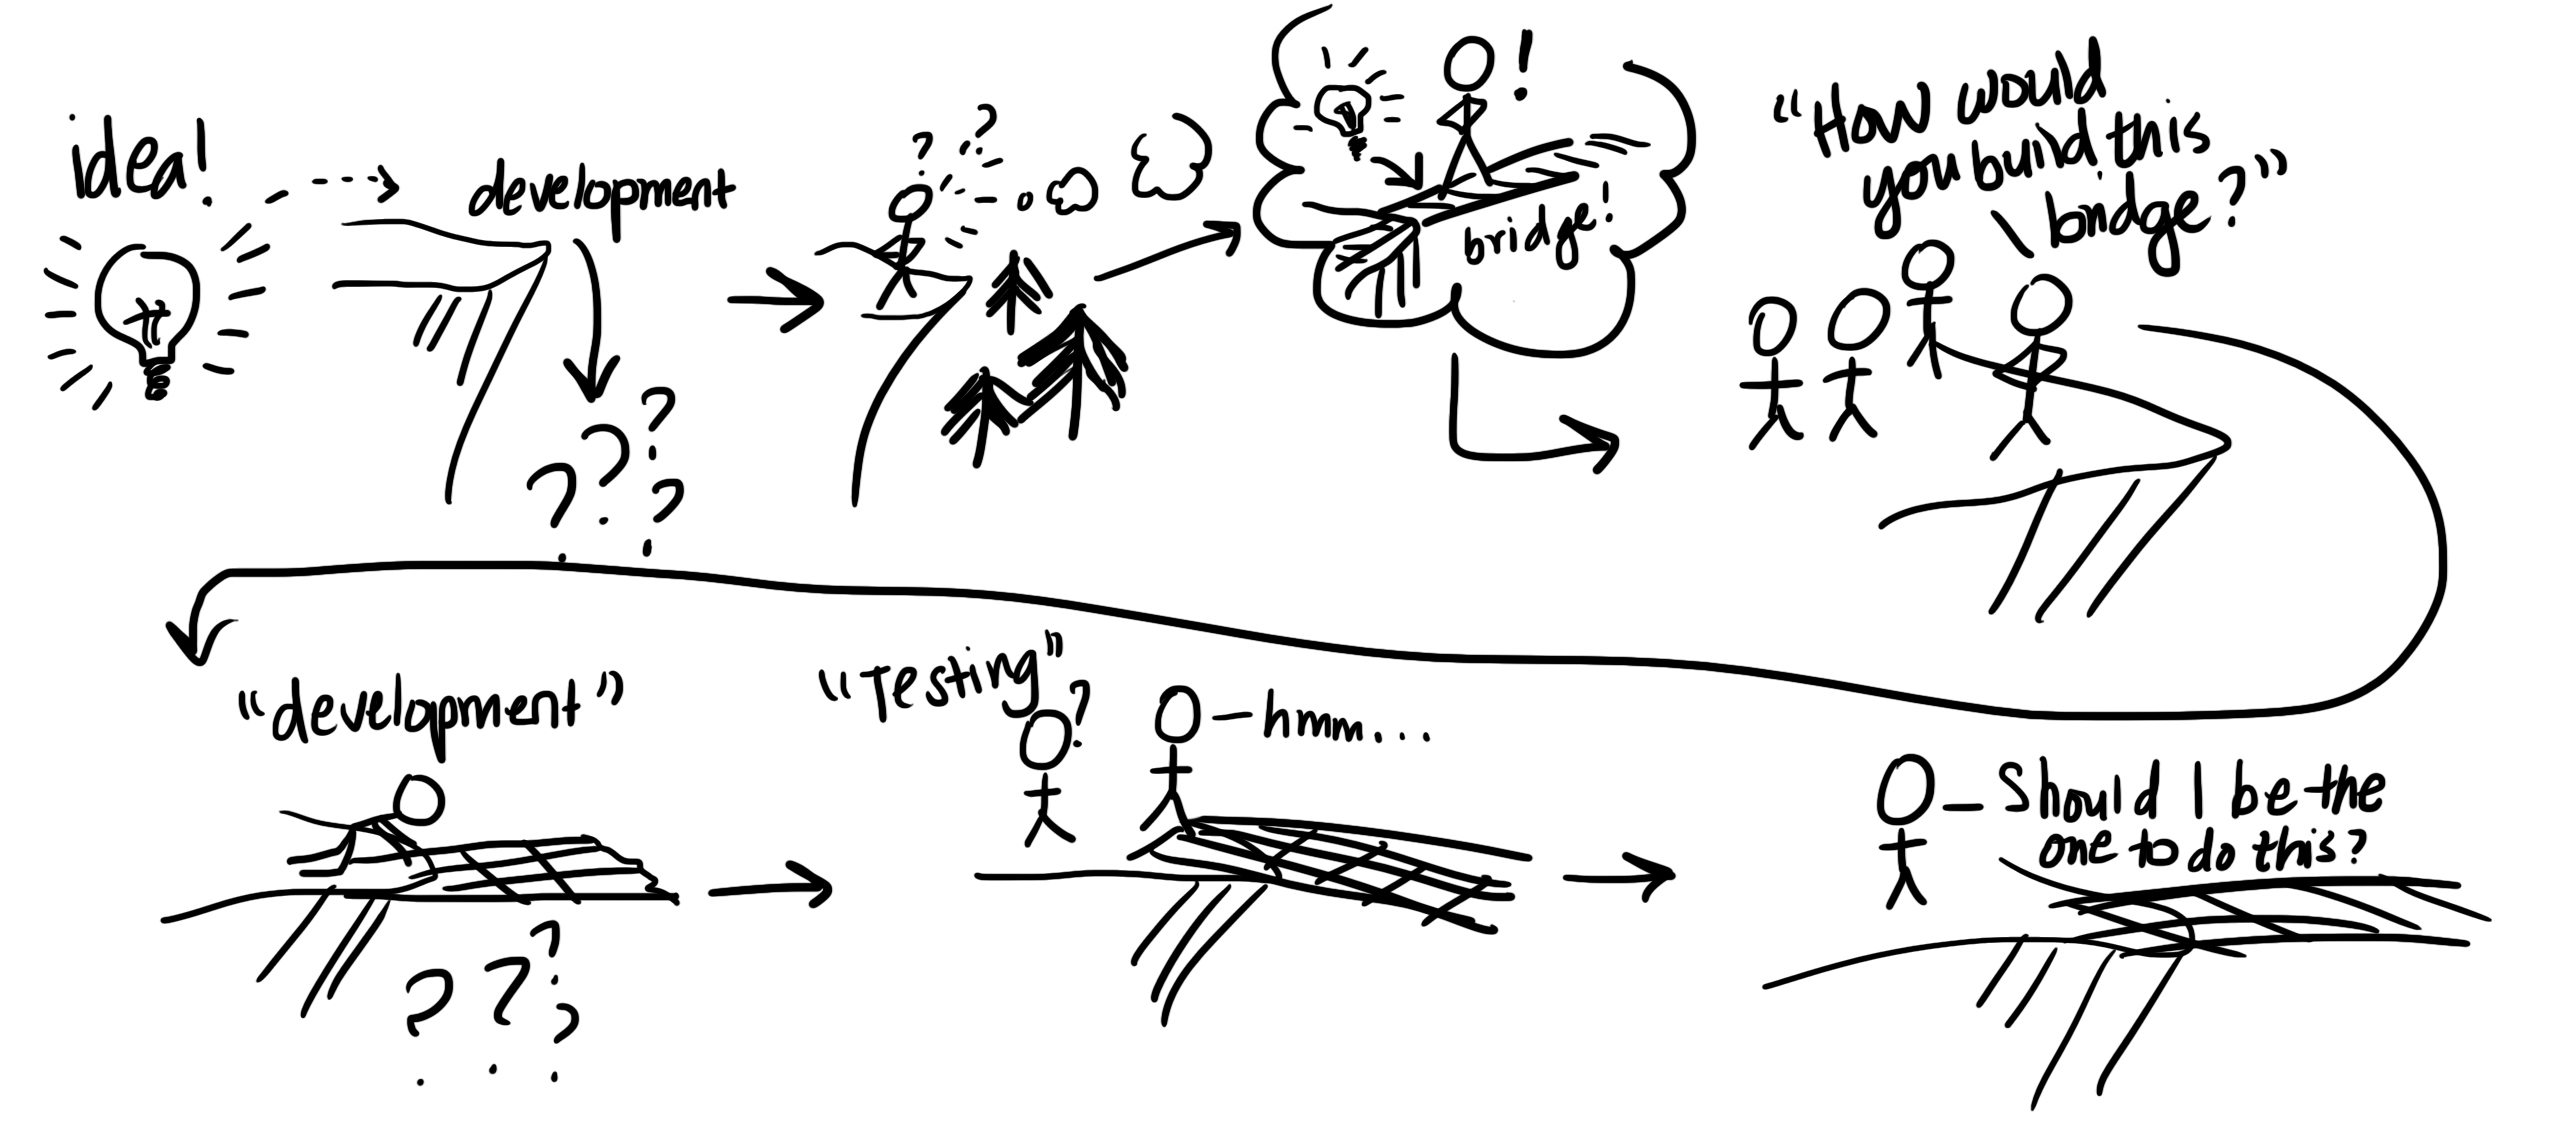 idea!
development
? ? ? ?
? ?
!
bridge!
"How would
you build this
bridge?"
"development"
? ? ? ?
"Testing"
?
hmm...
Should I be the
one to do this?